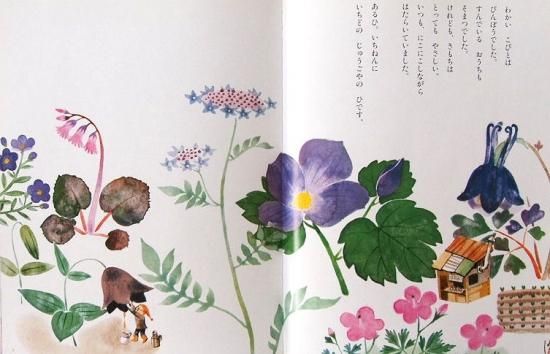 わかい　こびとは
びんぼうでした。
すんでいる　おうちも
そまつでした。
けれども、きもちは
とっても　やさしい。
いつも、にこにこしながら
はたらいていました。
あるひ、いちねんに
いちどの　じゅうごやの　ひです。